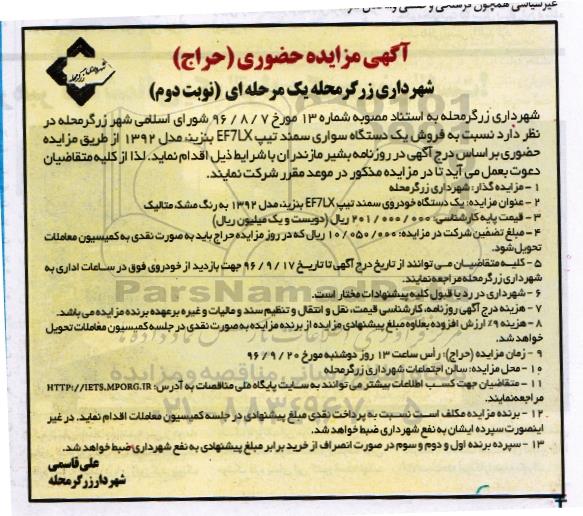 آگهی مزایده حضوری (حراج)
شهرداری زرگرمحله یک مرحله ای (نوبت دوم)
شهرداری زرگرمحله به استناد مصوبه شماره ۱۳ مورخ ۹۶/۸/۷ شورای اسلامی شهر زرگرمحله در
نظر دارد نسبت به فروش یک دستگاه سواری سمند تیپ EF7LX بنزینه مدل ۱۳۹۲ از طریق مزایده
حضوری بر اساس درج آگهی در روزنامه بشیر مازندران با شرایط ذیل اقدام نماید. لذا از کلیه متقاضیان
دعوت بعمل می آید تا در مزایده مذکور در موعد مقرر شرکت نمایند.
۱- مزایده گذار: شهرداری زرگرمحله
۲- عنوان مزایده: یک دستگاه خودروی سمند تیپ EF7LX بنزینه مدل ۱۳۹۲ به رنگ مشک متالیک
۳- قیمت پایه کارشناسی: ۲۰۱/۰۰۰/۰۰۰ ریال (دویست و یک میلیون ریال)
۴- مبلغ تضمین شرکت در مزایده: ۱۰/۰۵۰/۰۰۰ ریال که در روز مزایده حراج باید به صورت نقدی به کمیسیون معاملات
تحویل شود.
۵- کلیه متقاضیان می توانند از تاریخ درج آگهی تا تاریخ ۹۶/۹/۱۷ جهت بازدید از خودروی فوق در ساعات اداری به
شهرداری زرگرمحله مراجعه نمایند.
۶- شهرداری در رد یا قبول کلیه پیشنهادات مختار است.
۷- هزینه درج آگهی روزنامه، کارشناسی قیمت، نقل و انتقال و تنظیم سند و مالیات و غیره بر عهده برنده مزایده می باشد.
۸- هزینه ۹٪ ارزش افزوده بعلاوه مبلغ پیشنهادی مزایده از برنده مزایده به صورت نقدی در جلسه کمیسیون معاملات تحویل
خواهد شد.
۹- زمان مزایده (حراج): رأس ساعت ۱۳ روز دوشنبه مورخ ۹۶/۹/۲۰
۱۰- محل مزایده: سالن اجتماعات شهرداری زرگرمحله
۱۱- متقاضیان جهت کسب اطلاعات بیشتر می توانند به سایت پایگاه ملی مناقصات به آدرس: HTTP://IETS.MPORG.IR
مراجعه نمایند.
۱۲- برنده مزایده مکلف است نسبت به پرداخت نقدی مبلغ پیشنهادی در جلسه کمیسیون معاملات اقدام نماید. در غیر
اینصورت سپرده ایشان به نفع شهرداری ضبط خواهد شد.
۱۳- سپرده برنده اول و دوم و سوم در صورت انصراف از خرید برابر مبلغ پیشنهادی به نفع شهرداری ضبط خواهد شد.
علی قاسمی
شهردار زرگرمحله